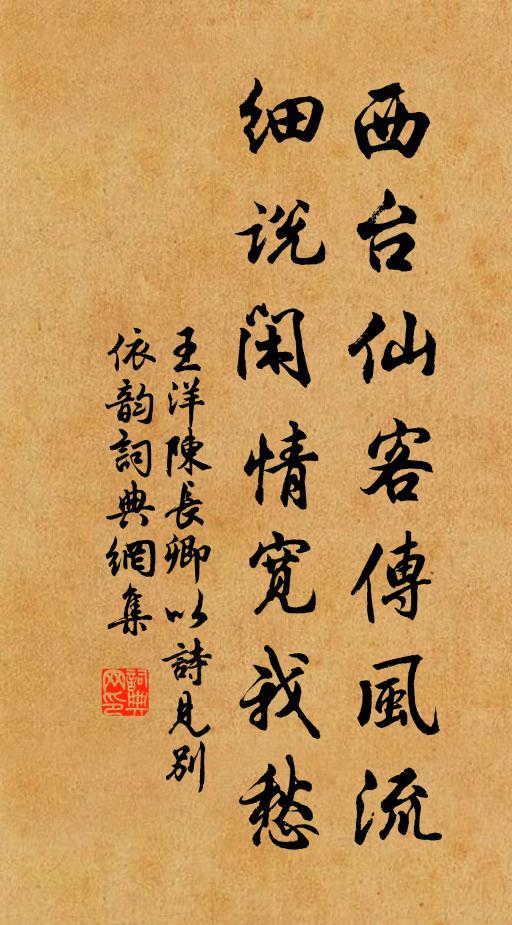 西台仙客傳風流
細説閑情寬我愁
王洋陳長卿以詩見別
依韵詞典網集
詞典
网印